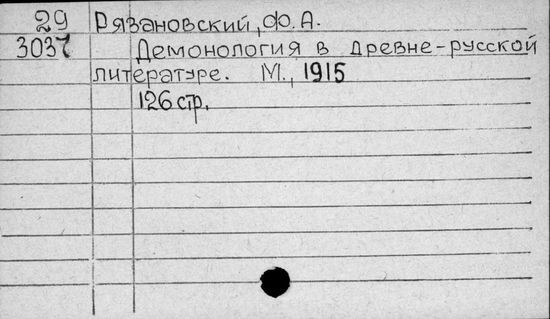 29 Рязановский, Ф. А.
3037 Демонология в древне-русской
литературе. М., 1915
126 стр.